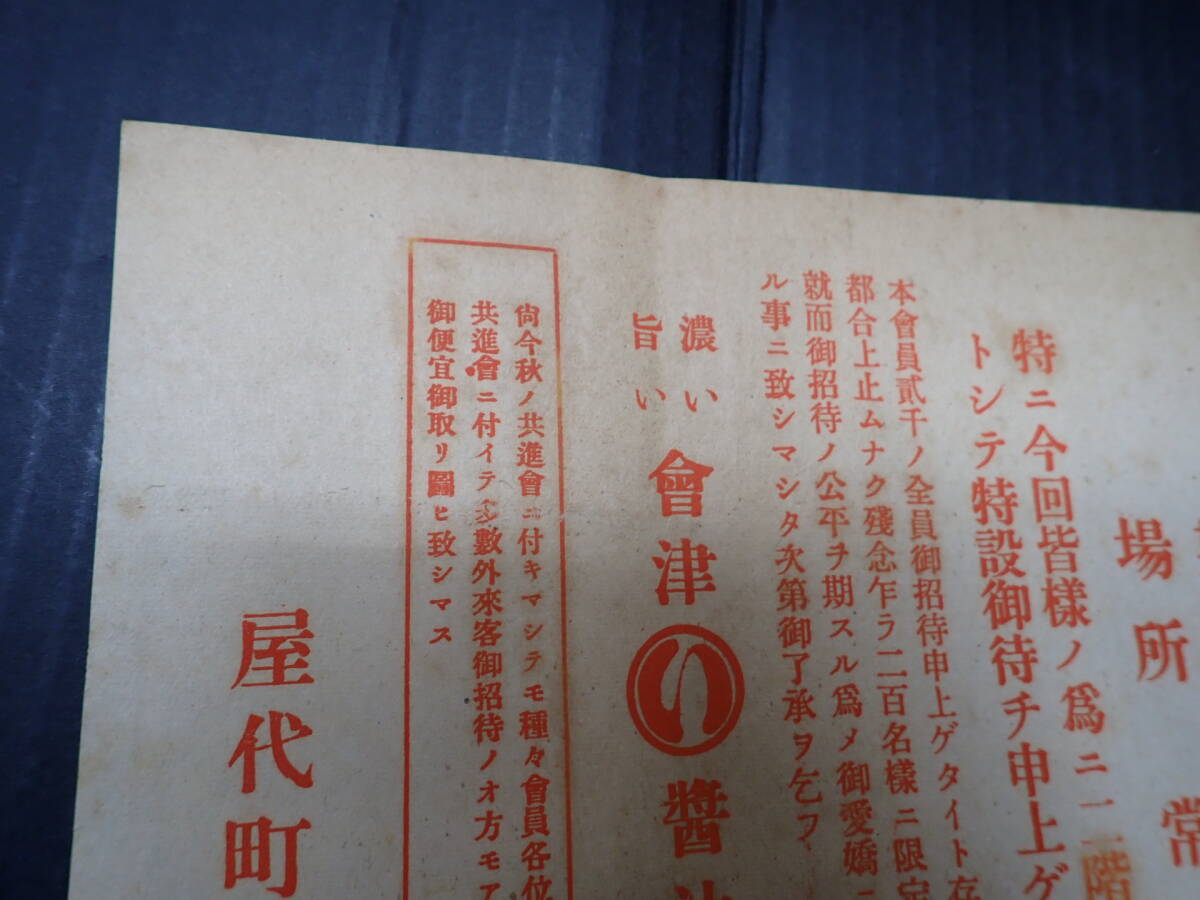 場所
常
特ニ今回皆様ノ爲ニ二階
トシテ特設御待チ申上ゲ
本會員貳千ノ全員御招待申上ゲタイト存
都合上止ムナク殘念乍ラ二百名様ニ限定
就而御招待ノ公平ヲ期スル爲メ御愛嬌ニ
ル事ニ致シマシタ次第御了承ヲ乞フ
濃い
旨い
會津い醬油
尙今秋ノ共進會ニ付キマシテモ種々會員各位
共進會ニ付イテ多數外來客御招待ノオ方モア
御便宜御取リ圖ヒ致シマス
屋代町